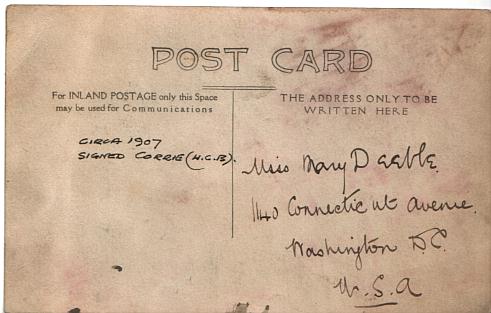 POST CARD
For INLAND POSTAGE only this Space
may be used for Communications
THE ADDRESS ONLY TO BE
WRITTEN HERE
CIRCA 1907
SIGNED CORRIE (H.C.B).
Miss Mary Deeble.
1140 Connecticut Avenue.
Washington D.C.
U.S.A